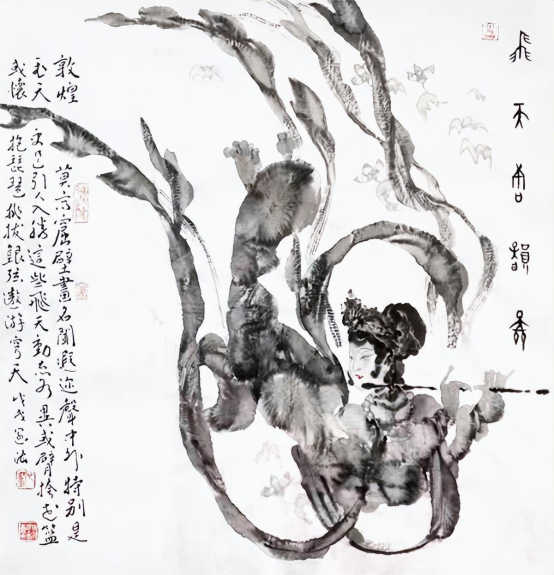 飛天韻
敦煌莫高窟壁畫名聞遐迩聲中外特別是
飛天更是引人入勝這些飛天動态各異或臂挎花籃
或懷抱琵琶挑拔銀弦遨游穹天戊戌